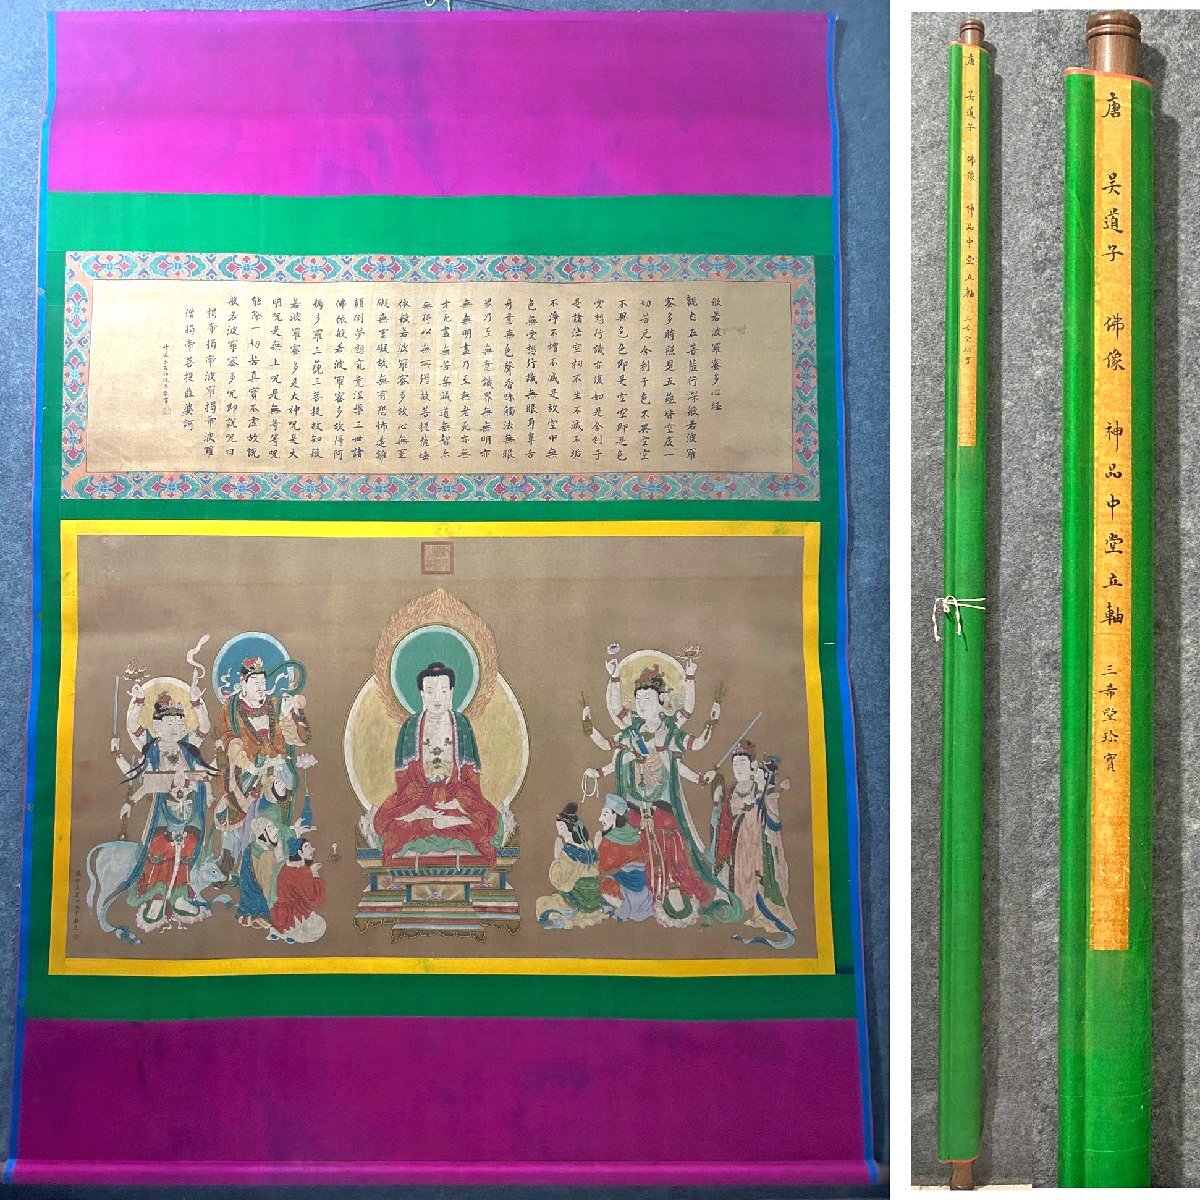 般若波羅蜜多心經
觀自在菩薩行深般若波羅
蜜多時照見五蘊皆空度一
切苦厄舍利子色不異空空
不異色色即是空空即是色
受想行識亦復如是舍利子
是諸法空相不生不滅不垢
不淨不增不減是故空中無
色無受想行識無眼耳鼻舌
身意無色聲香味觸法無眼
界乃至無意識界無無明亦
無無明盡乃至無老死亦無
老死盡無苦集滅道無智亦
無得以無所得故菩提薩埵
依般若波羅蜜多故心無罣
礙無罣礙故無有恐怖遠離
顛倒夢想究竟涅槃三世諸
佛依般若波羅蜜多故得阿
耨多羅三藐三菩提故知般
若波羅蜜多是大神咒是大
明咒是無上咒是無等等咒
能除一切苦真實不虛故說
般若波羅蜜多咒即說咒曰
揭帝揭帝波羅揭帝波羅
僧揭帝菩提薩婆訶
唐 吴道子 佛像 神品中堂立軸 三希堂珍寶
唐 吴道子 佛像 神品中堂立軸 三希堂珍寶